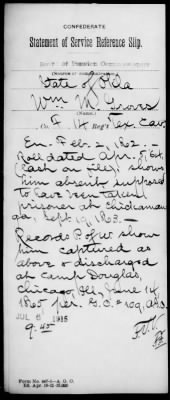 CONFEDERATE
Statement of Service Reference Slip.
State of Okla
Wm M.
(Name.)
Co. F 14 Reg't Tex. Cav
En. Feb. 2, 1862.—
Roll dated Apr. 5, 64,
(last on file) shows
him absent supposed
to have been taken
prisoner at Chickamau
ga, Sept. 19, 1863.—
Records P. of W. show
him captured as
above & discharged
at Camp Douglas,
Chicago, Ill. June 14,
1865 per. G.O. #109, A.G.O.
JUL 6 1915
9:45
Form No.